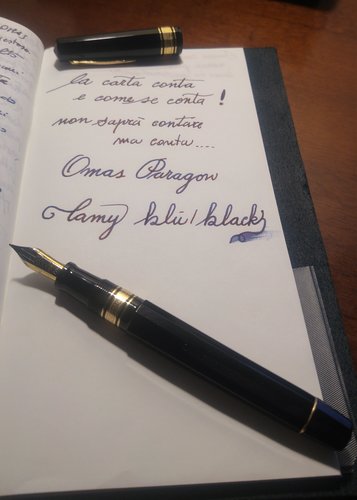 la carta conta
e come se conta !
non saprà contare
ma conta....
Omas Paragon
lamy blu/black